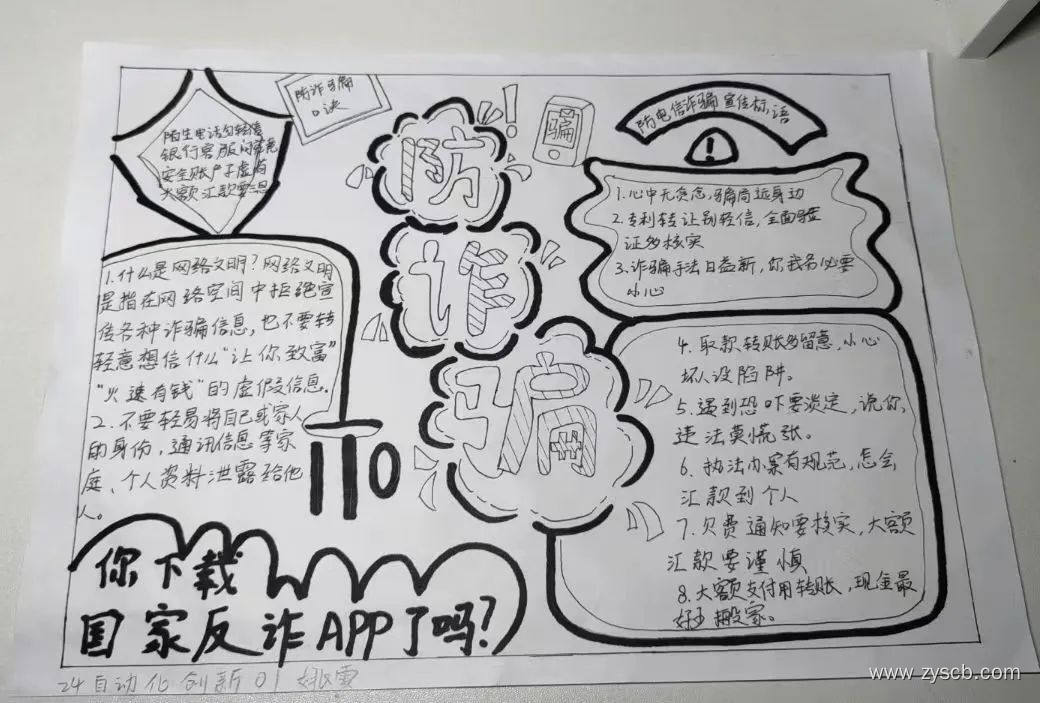 防诈骗
口诀
陌生电话勿轻信
银行客服问
安全账户子虚有
大额汇款要
防
诈
骗
骗
防电信诈骗宣传标语
!
1.心中无贪念,骗局远身边
2.专利转让别轻信,全面验
证多核实
3.诈骗手法日益新,你我务必要
小心
4.取款转账多留意,小心
坏人设陷阱。
5.遇到恐吓要淡定,说你
违法莫慌张。
6.执法办案有规范,怎会
汇款到个人
7.欠费通知要核实,大额
汇款要谨慎
8.大额支付用转账,现金最
好少搬家。
1.什么是网络文明?网络文明
是指在网络空间中拒绝宣
传各种诈骗信息,也不要转
轻意想信什么“让你致富”
“火速有钱”的虚假信息.
2.不要轻易将自己或家人
的身份,通讯信息等家
庭、个人资料泄露给他
人。
110
你下载
国家反诈APP了吗?
24自动化创新01 姚雪
www.zyscb.com